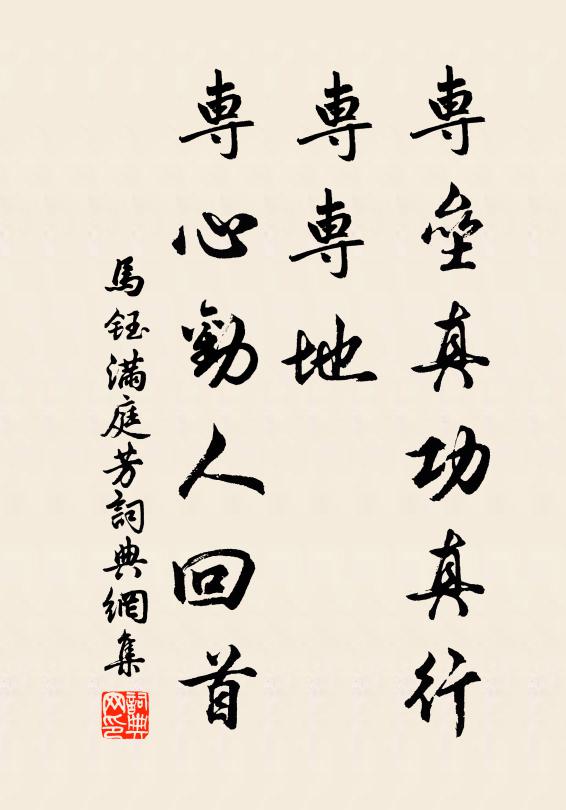 專垒真功真行
專專地
專心勸人回首
馬鈺滿庭芳詞典網集
詞典网印